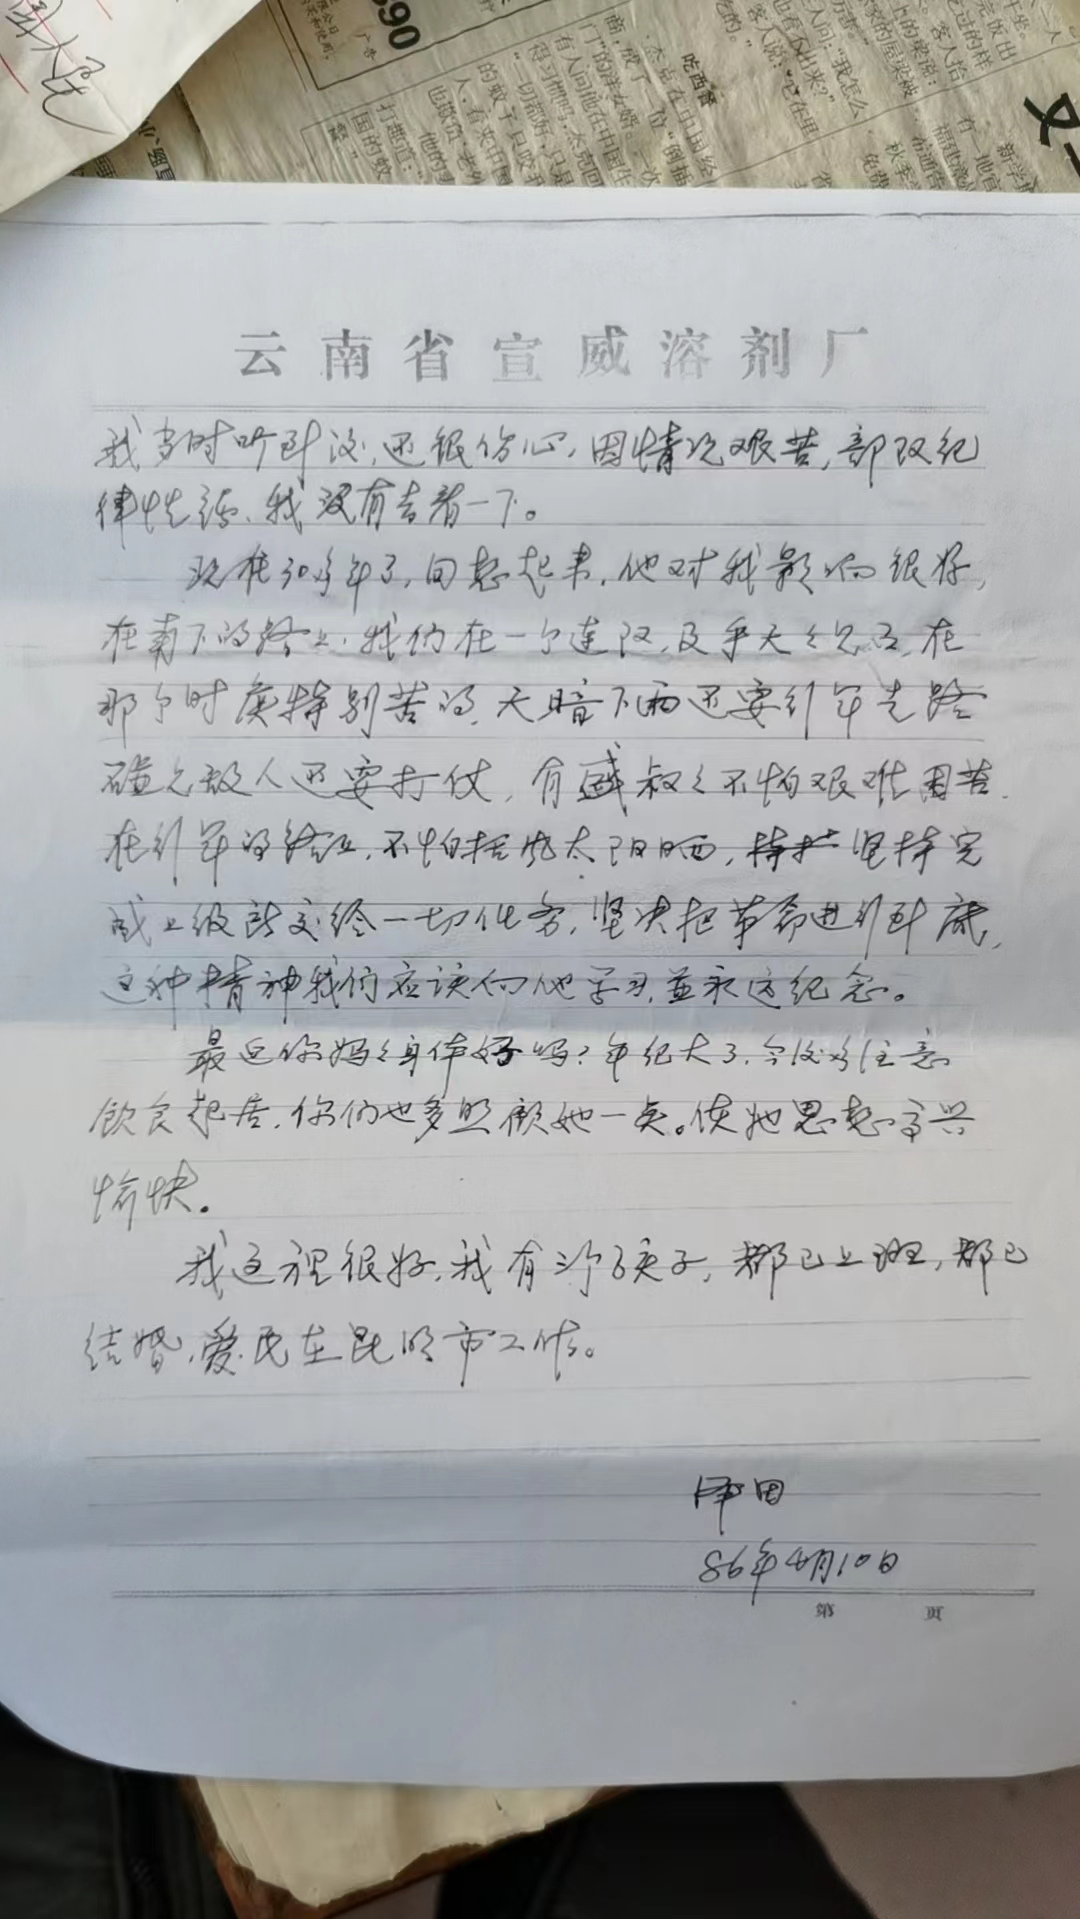 云南省宣威溶剂厂
我当时听到没,还很伤心,因情况艰苦,部队纪
律性强、我没有去看一下。
现在30多年了,回想起来,他对我影响很好,
在南下的路上,我们在一个连队,及乎天天见面,在
那个时候特别苦的,天暗下雨还要行军走路
碰见敌人还要打仗,有盛叔々不怕艰难困苦.
在行军的路上,不怕括风太阳晒,坚持完
成上级所交给一切任务,坚决把革命进行到底,
这种精神我们应该向他学习,並永远纪念。
最近你妈々身体好吗?年纪大了,今后多注意
飲食起居,你们也多照顾她一点。使她思想高兴
愉快。
我这裡很好,我有孩子,都已上班,都已
结婚,爱民在昆明市工作。
田
86年4月10日
第 页
690
吃西餐